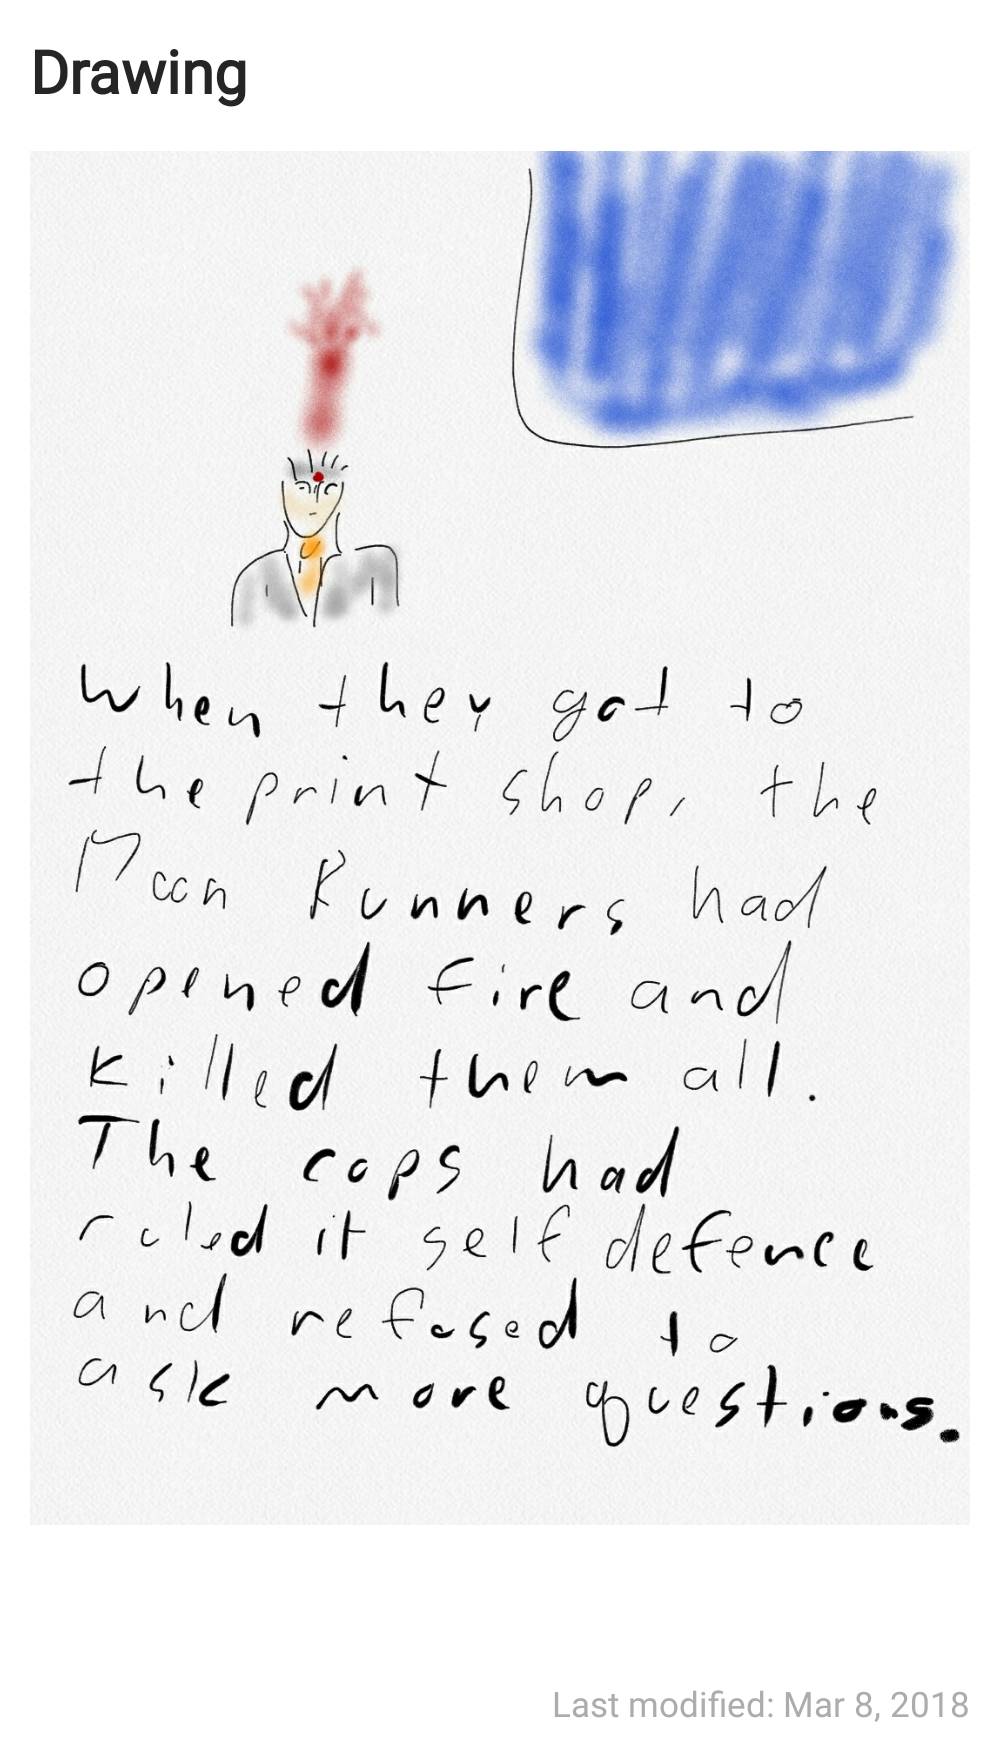 Drawing
When they got to
the print shop, the
Moon Runners had
opened fire and
killed them all.
The cops had
ruled it self defence
and refused to
ask more questions.
Last modified: Mar 8, 2018